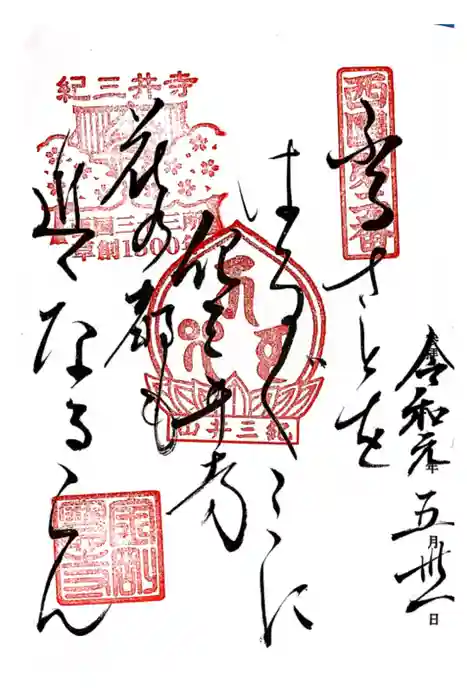 令和元年五月卅一日
西国第二番
ふるさとを
はる〲こゝに
紀三井寺
花の都も
近くなるらん
紀三井寺
西国三十三所
草創1300年
紀三井山
金剛寶寺